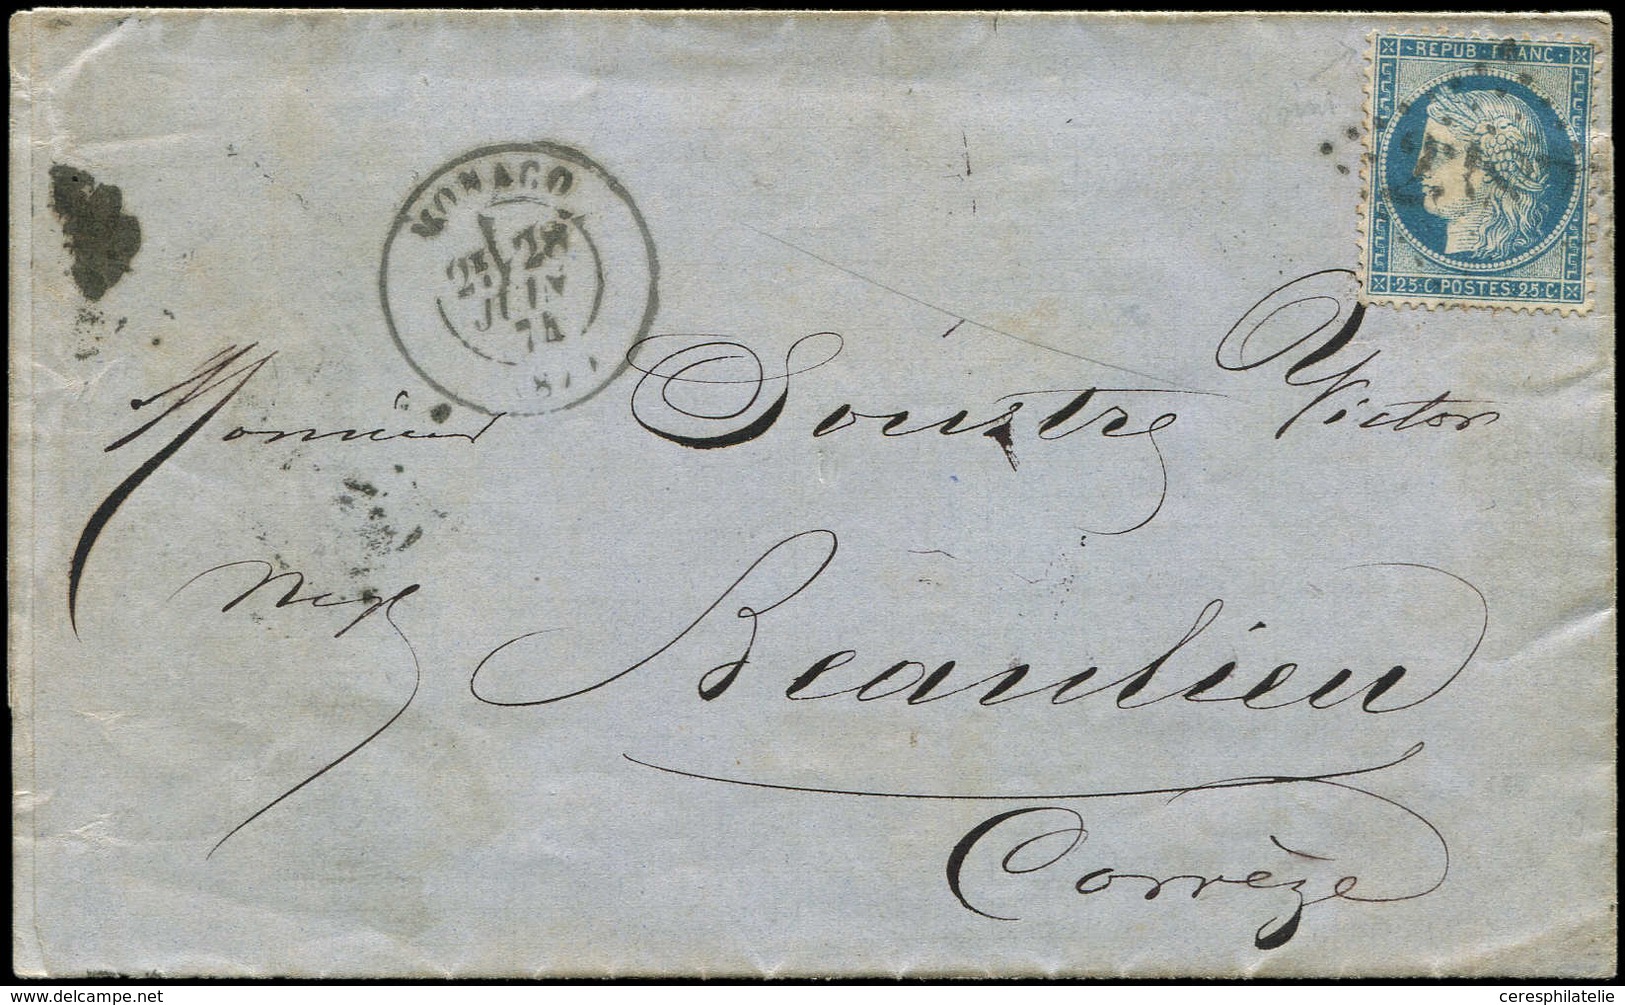 REPUB·FRANC·
2387
25·C POSTES·25·C
MONACO
2E 28
JUIN
74
(87)
Monsieur Soustre Victor
Négt Beaulieu
Corrèze
ceresphilatelie